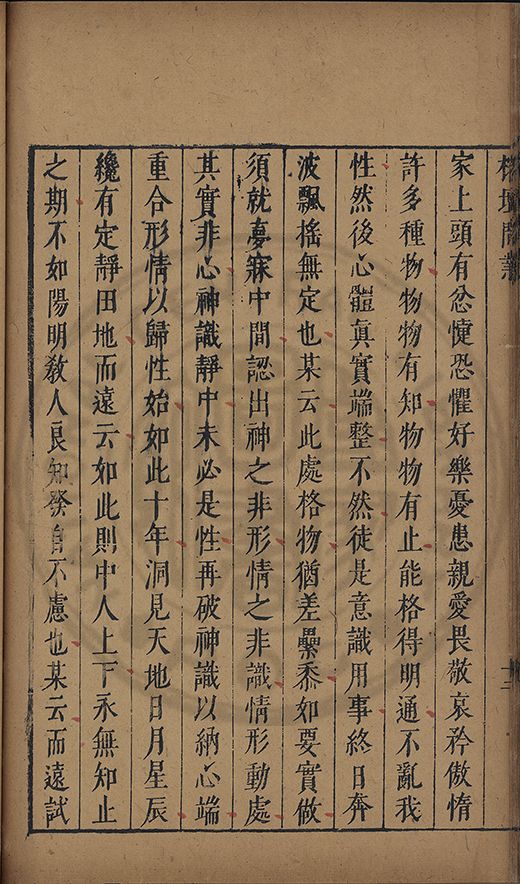 榕壇問業
十二
家上頭有忿懥恐懼好樂憂患親愛畏敬哀矜傲惰
許多種物物物有知物物有止能格得明通不亂我
性然後心體眞實端整不然徒是意識用事終日奔
波飄搖無定也某云此處格物猶差纍黍如要實做
須就夢寐中間認出神之非形情之非識情形動處
其實非心神識靜中未必是性再破神識以納心端
重合形情以歸性始如此十年洞見天地日月星辰
纔有定靜田地而遠云如此則中人上下永無知止
之期不如陽明敎人良知發自不慮也某云而遠試